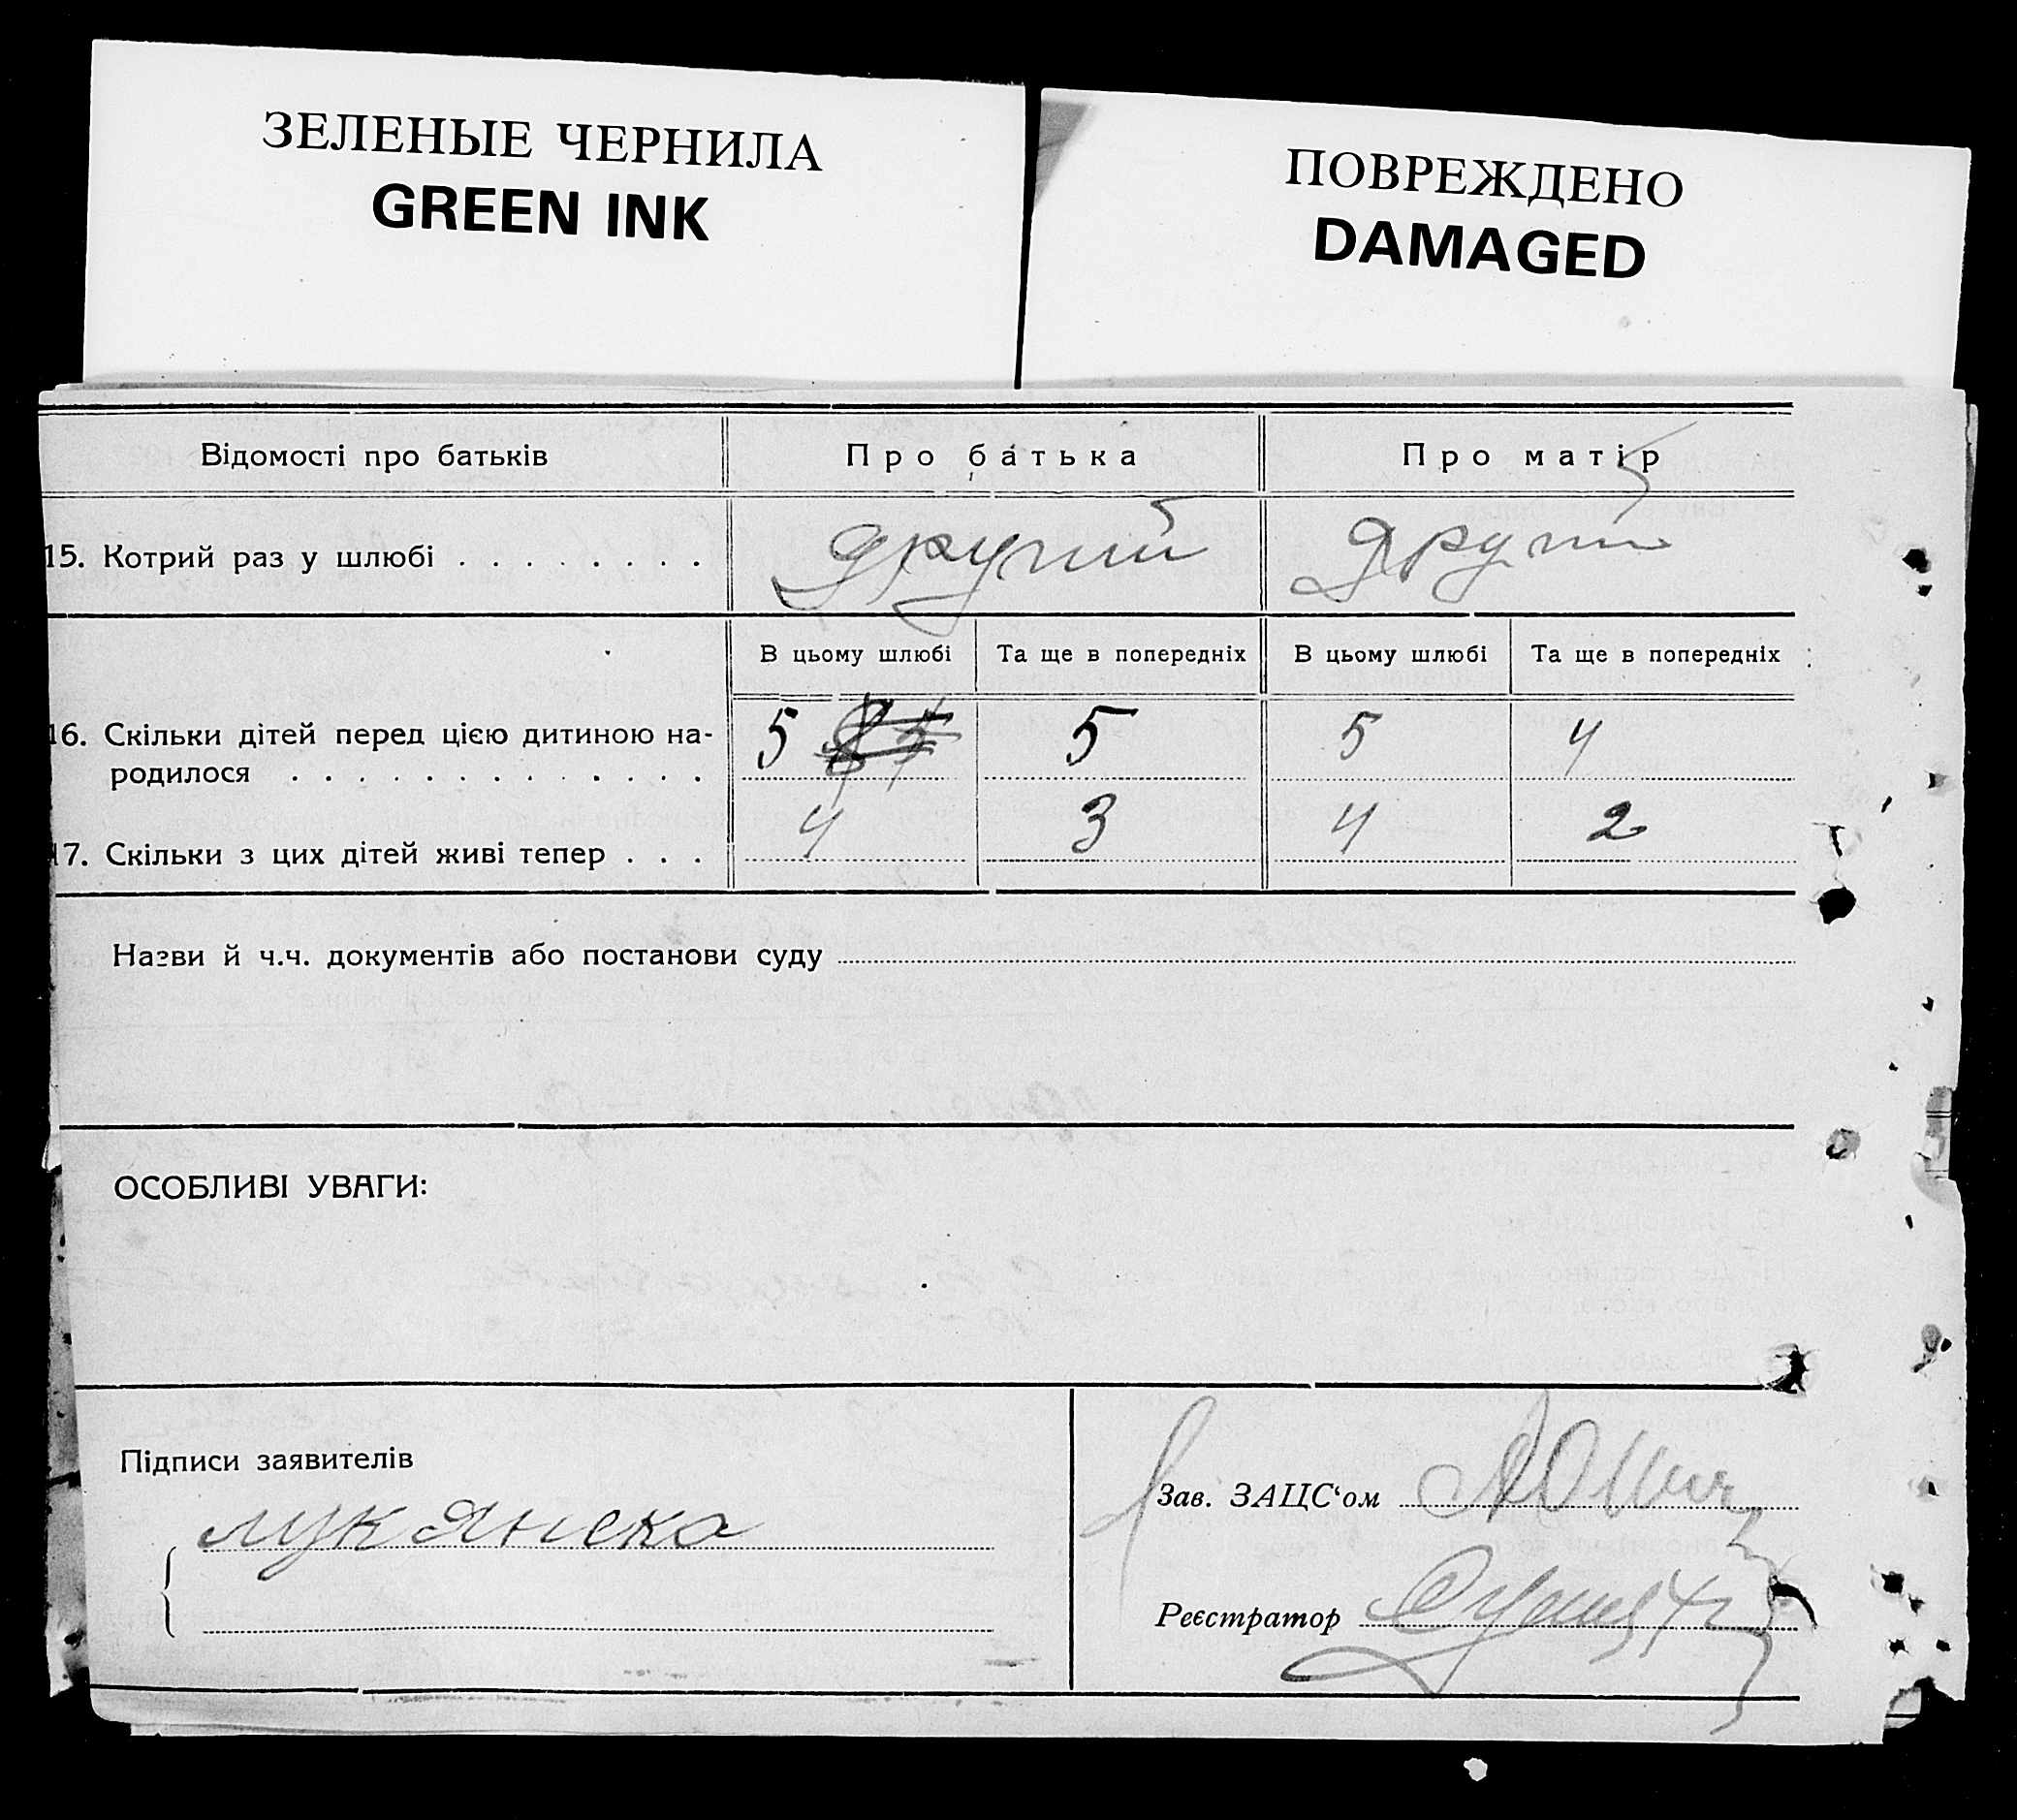 ЗЕЛЕНЫЕ ЧЕРНИЛА
GREEN INK
ПОВРЕЖДЕНО
DAMAGED
Відомості про батьків Про батька Про матір
15. Котрий раз у шлюбі . . . . . . . . другий други
В цьому шлюбі Та ще в попередніх В цьому шлюбі Та ще в попередніх
16. Скільки дітей перед цією дитиною на- 5 5 5 4
родилося . . . . . . . . . . . . .
17. Скільки з цих дітей живі тепер . . . 4 3 4 2
Назви й ч.ч. документів або постанови суду
ОСОБЛИВІ УВАГИ:
Підписи заявителів
Зав. ЗАЦС‘ом
Реєстратор